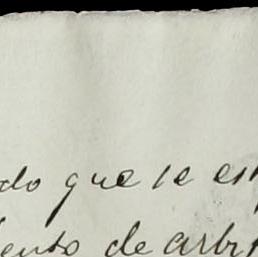 do que se es
iento de arbi